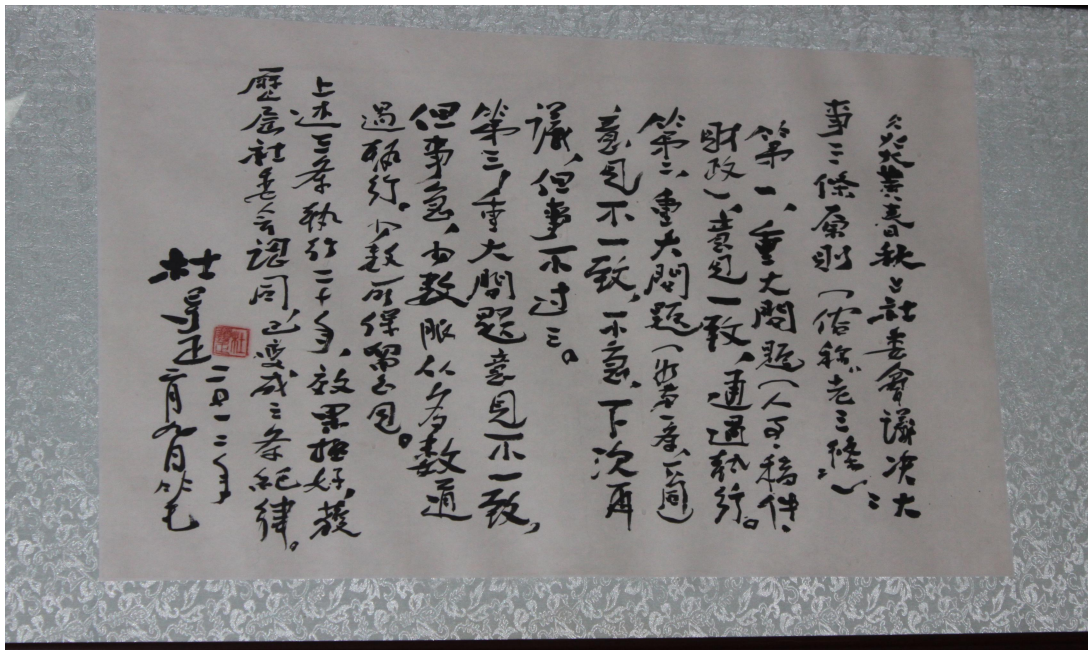 《炎黄春秋》社委會議决大
事三條原則（俗称“老三條”）：
第一，重大問題（人事、稿件、
財政），意見一致，通過執行。
第二，重大問題
意見不一致，不急，下次再
議，但事不过三。
第三，重大問題意見不一致，
但事急，少数服从多数通
過執行。少数可保留意見。
上述三条執行二十年，效果極好，
歷届社委会認同，已變成三条紀律。
杜导正
二〇一二年
二月九日